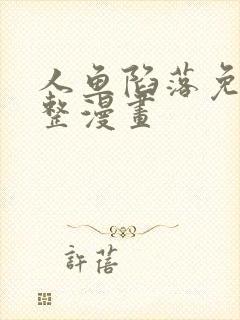 人鱼陷落免
整漫畫
許蓓